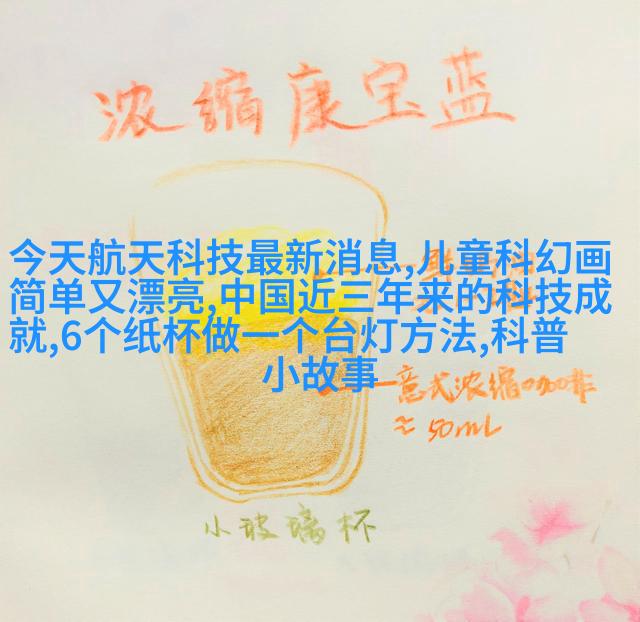 浓缩康宝蓝
今天航天科技最新消息,儿童科幻画
简单又漂亮,中国近三年来的科技成
就,6个纸杯做一个台灯方法,科普
小故事
意式浓缩咖啡
≈50mL
小玻璃杯